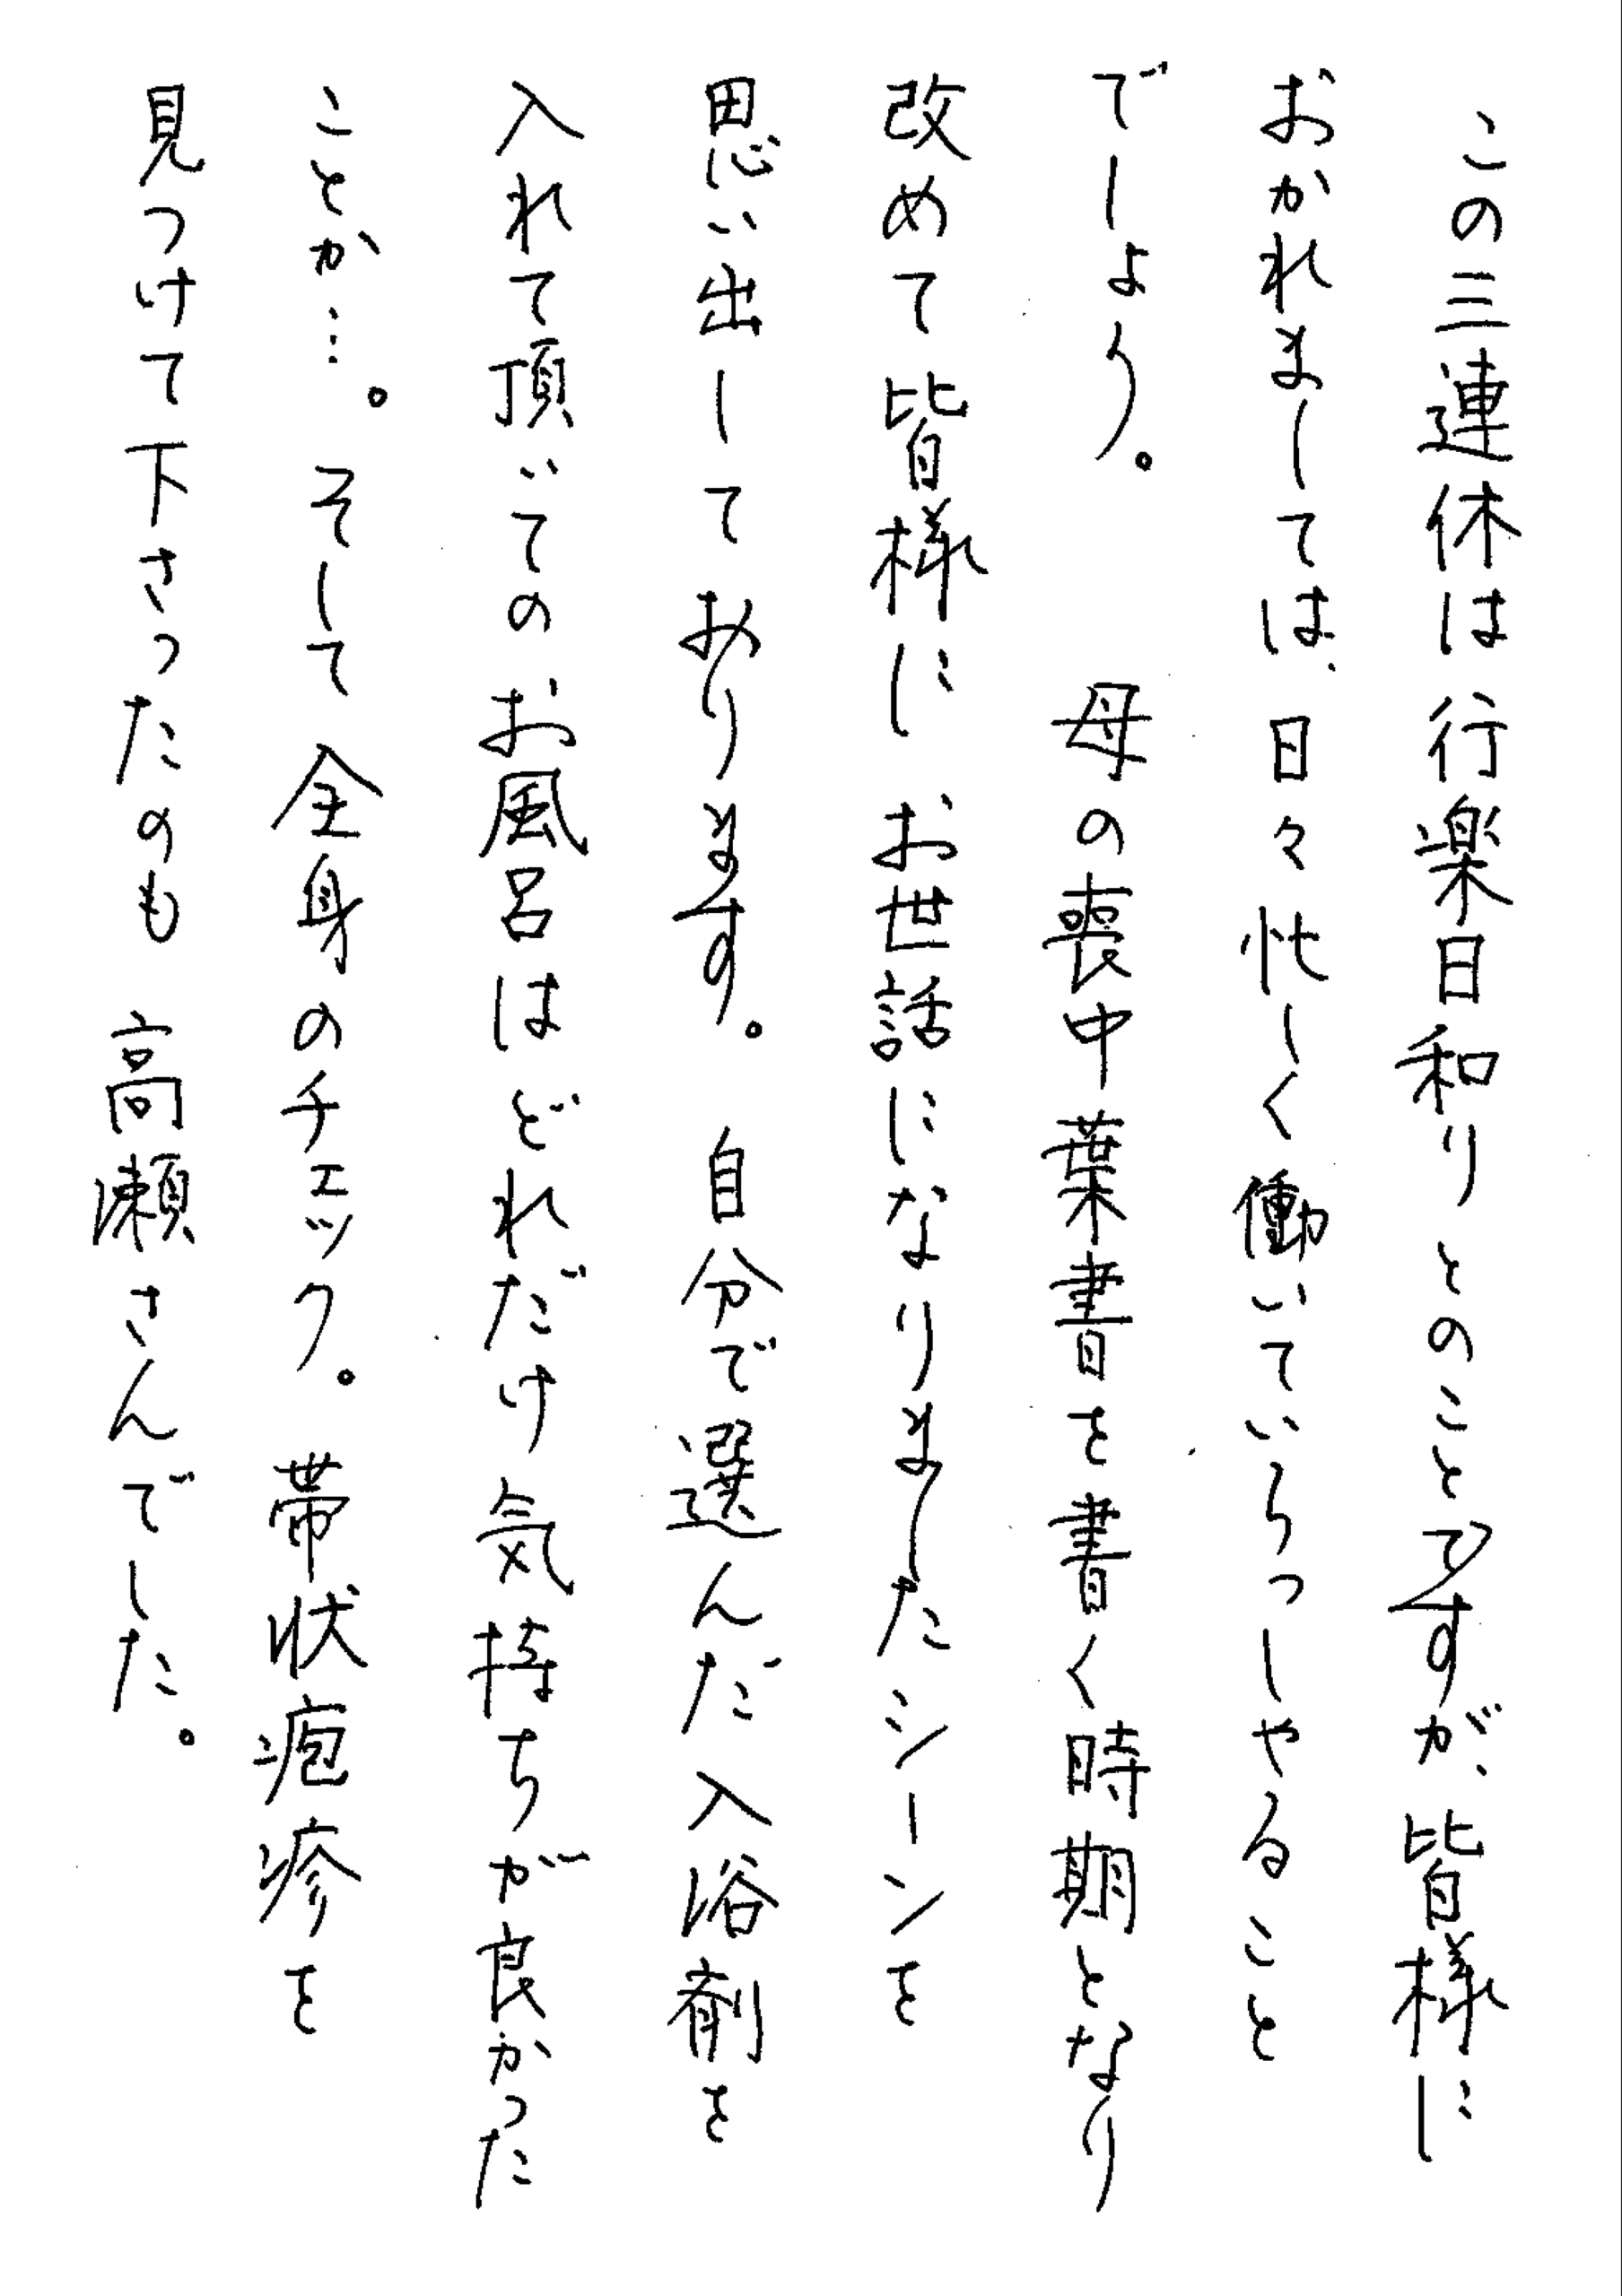 この三連休は行楽日和りとのことですが、皆様に
おかれましては、日々忙しく働いていらっしゃること
でしょう。　母の喪中葉書を書く時期となり
改めて皆様にお世話になりましたシーンを
思い出しております。自分で選んだ入浴剤を
入れて頂いてのお風呂はどれだけ気持ちが良かった
ことか…。そして全身のチェック。帯状疱疹を
見つけて下さったのも高瀬さんでした。